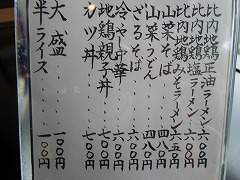 比内地鶏正油ラーメン 六〇〇円
比内地鶏塩ラーメン 六〇〇円
比内地鶏みそラーメン 六五〇円
山菜そば 四八〇円
山菜うどん 四八〇円
ざるそば 六〇〇円
冷やし中華 六〇〇円
地鶏親子丼 七〇〇円
カツ丼 七〇〇円
大盛 一〇〇円
半ライス 一〇〇円